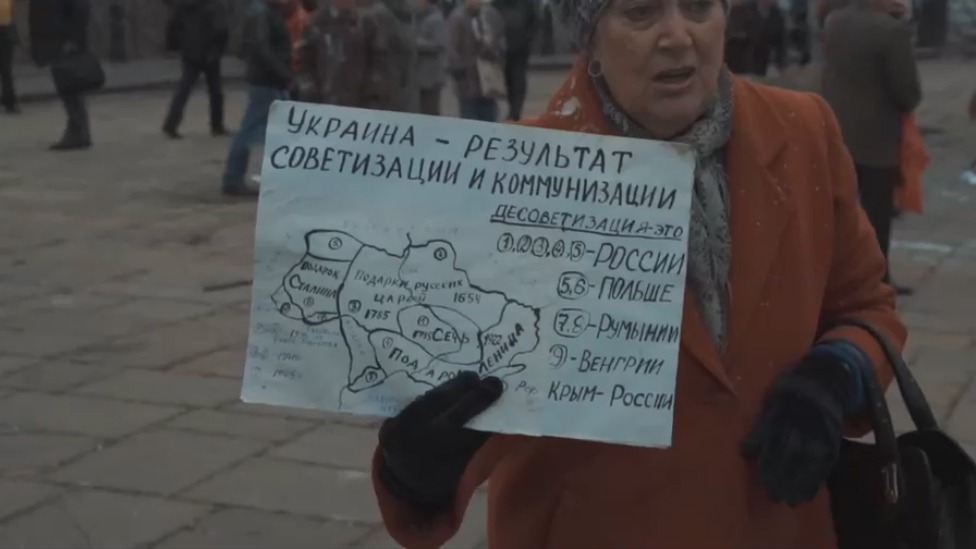 УКРАИНА – РЕЗУЛЬТАТ
СОВЕТИЗАЦИИ И КОММУНИЗАЦИИ
ДЕСОВЕТИЗАЦИЯ-ЭТО
①,②,③,④,⑤-РОССИИ
5,6 - ПОЛЬШЕ
7,8 - РУМЫНИИ
9 - ВЕНГРИИ
КРЫМ-РОССИИ
ПОДАРОК
СТАЛИНА
ПОДАРКИ РУССКИХ
ЦАРЕЙ 1654
СЕЧЬ
1922
ЛЕНИНА